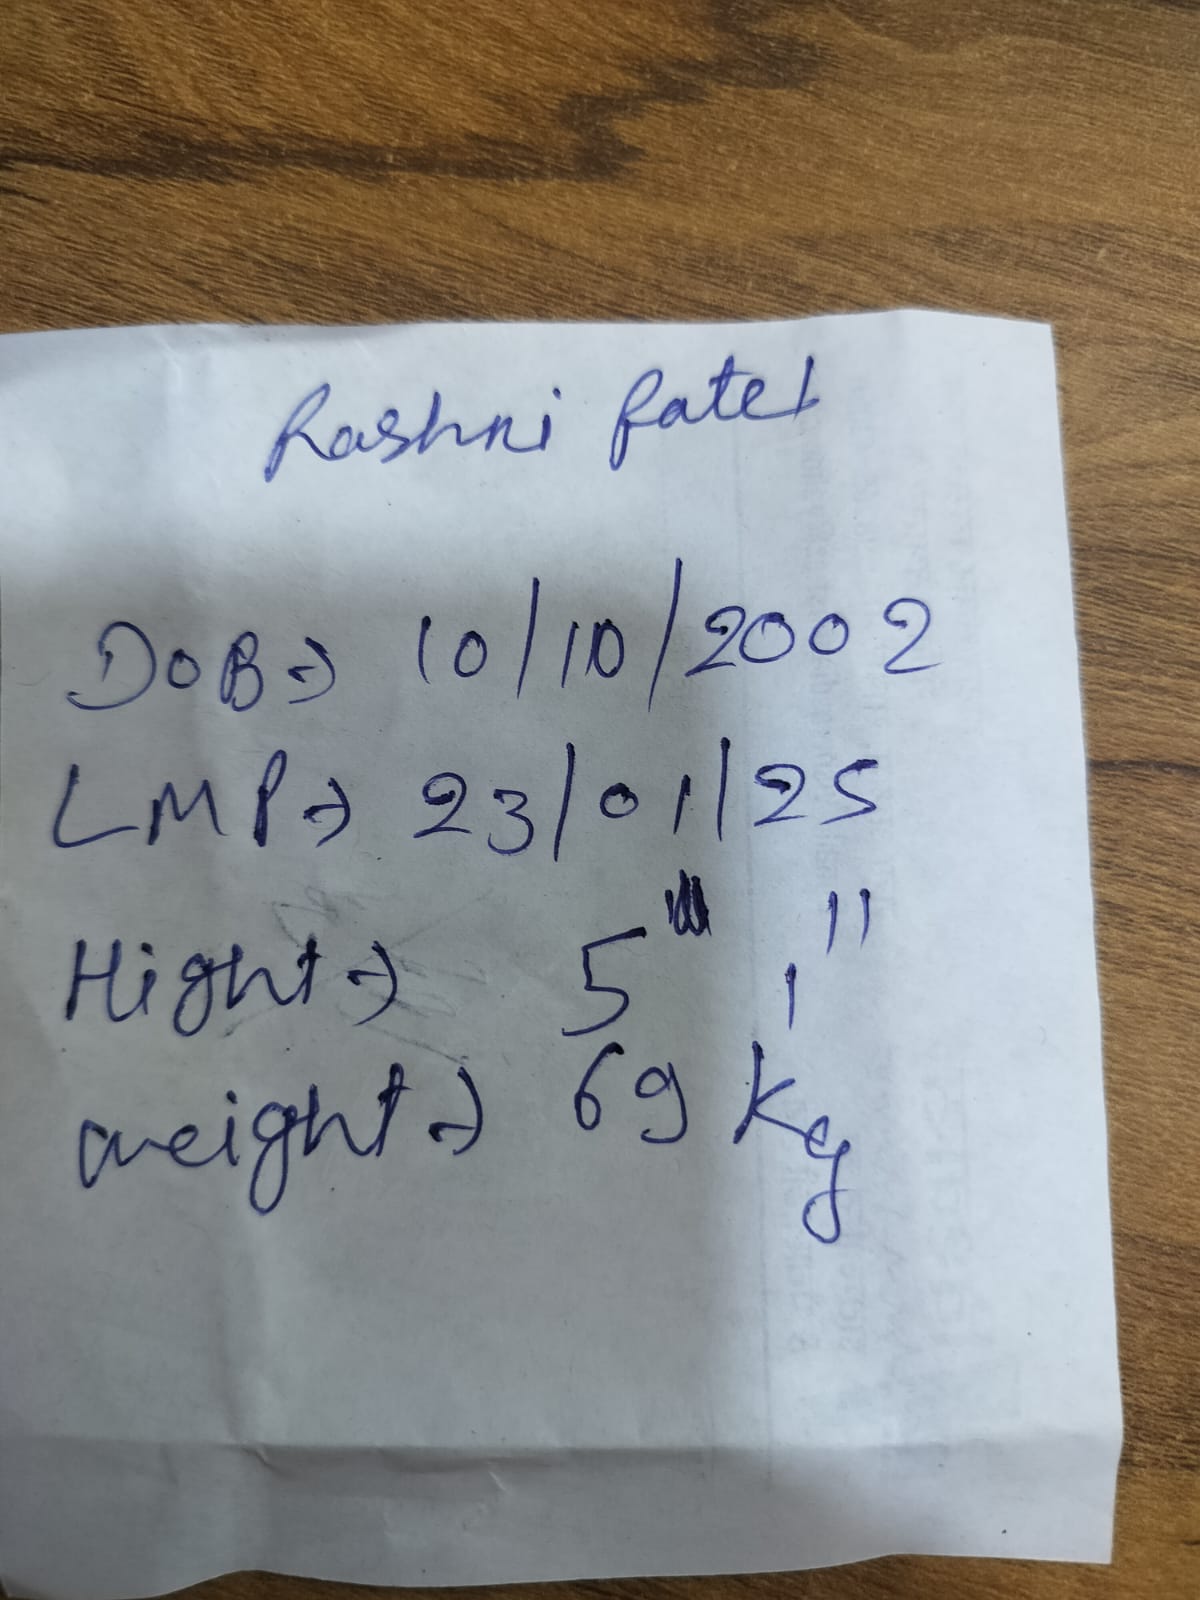 Rashni Patel
DOB → 10/10/2002
LMP → 23/01/25
Hight → 5 1"
weight → 69 kg